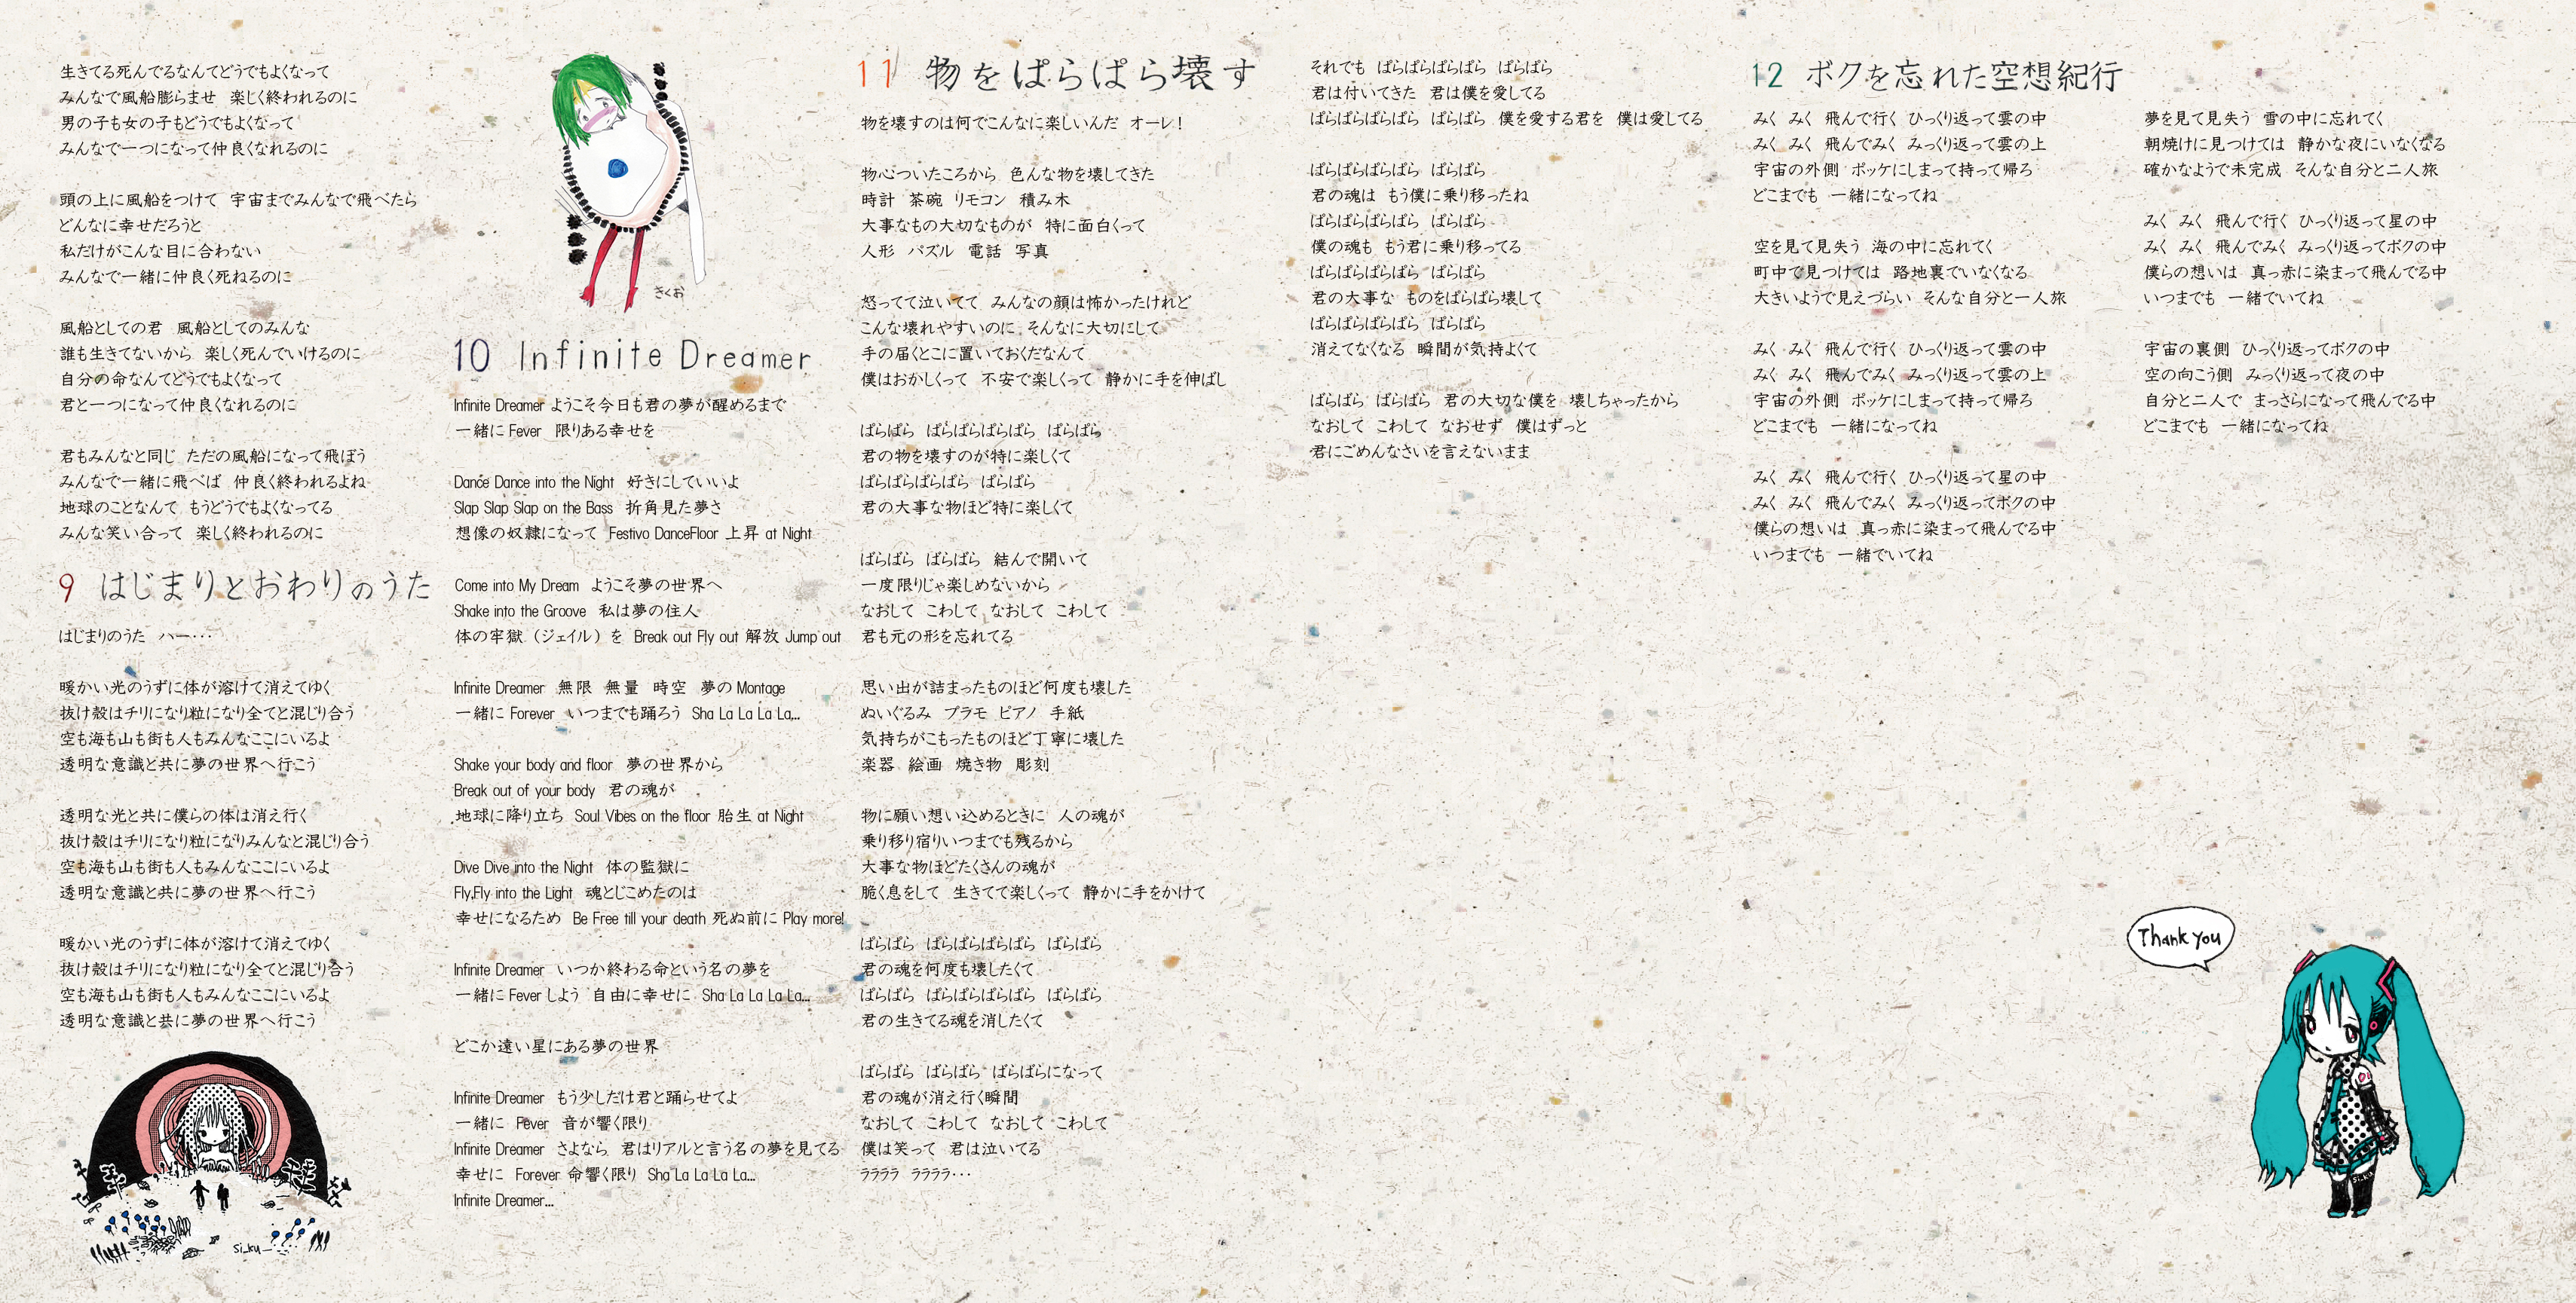 生きてる死んでるなんてどうでもよくなって
みんなで風船膨らませ　楽しく終われるのに
男の子も女の子もどうでもよくなって
みんなで一つになって仲良くなれるのに
頭の上に風船をつけて　宇宙までみんなで飛べたら
どんなに幸せだろうと
私だけがこんな目に合わない
みんなで一緒に仲良く死ねるのに
風船としての君　風船としてのみんな
誰も生きてないから　楽しく死んでいけるのに
自分の命なんてどうでもよくなって
君と一つになって仲良くなれるのに
君もみんなと同じ　ただの風船になって飛ぼう
みんなで一緒に飛べば　仲良く終われるよね
地球のことなんて　もうどうでもよくなってる
みんな笑い合って　楽しく終われるのに
9 はじまりとおわりのうた
はじまりのうた　ハー・・・
暖かい光のうずに体が溶けて消えてゆく
抜け殻はチリになり粒になり全てと混じり合う
空も海も山も街も人もみんなここにいるよ
透明な意識と共に夢の世界へ行こう
透明な光と共に僕らの体は消え行く
抜け殻はチリになり粒になりみんなと混じり合う
空も海も山も街も人もみんなここにいるよ
透明な意識と共に夢の世界へ行こう
暖かい光のうずに体が溶けて消えてゆく
抜け殻はチリになり粒になり全てと混じり合う
空も海も山も街も人もみんなここにいるよ
透明な意識と共に夢の世界へ行こう
si_ku_
きくお
10 Infinite Dreamer
Infinite Dreamer ようこそ今日も君の夢が醒めるまで
一緒に Fever　限りある幸せを
Dance Dance into the Night　好きにしていいよ
Slap Slap Slap on the Bass　折角見た夢さ
想像の奴隷になって　Festivo DanceFloor 上昇 at Night
Come into My Dream　ようこそ夢の世界へ
Shake into the Groove　私は夢の住人
体の牢獄（ジェイル）を　Break out Fly out 解放 Jump out
Infinite Dreamer　無限　無量　時空　夢の Montage
一緒に Forever　いつまでも踊ろう　Sha La La La La...
Shake your body and floor　夢の世界から
Break out of your body　君の魂が
地球に降り立ち　Soul Vibes on the floor 胎生 at Night
Dive Dive into the Night　体の監獄に
Fly,Fly into the Light　魂とじこめたのは
幸せになるため　Be Free till your death 死ぬ前に Play more!
Infinite Dreamer　いつか終わる命という名の夢を
一緒に Fever しよう　自由に幸せに　Sha La La La La...
どこか遠い星にある夢の世界
Infinite Dreamer　もう少しだけ君と踊らせてよ
一緒に　Fever　音が響く限り
Infinite Dreamer　さよなら　君はリアルと言う名の夢を見てる
幸せに　Forever 命響く限り　Sha La La La La...
Infinite Dreamer...
11 物をぱらぱら壊す
物を壊すのは何でこんなに楽しいんだ　オーレ！
物心ついたころから　色んな物を壊してきた
時計　茶碗　リモコン　積み木
大事なもの大切なものが　特に面白くって
人形　パズル　電話　写真
怒ってて泣いてて　みんなの顔は怖かったけれど
こんな壊れやすいのに　そんなに大切にして
手の届くとこに置いておくだなんて
僕はおかしくって　不安で楽しくって　静かに手を伸ばし
ぱらぱら　ぱらぱらぱらぱら　ぱらぱら
君の物を壊すのが特に楽しくて
ぱらぱらぱらぱら　ぱらぱら
君の大事な物ほど特に楽しくて
ぱらぱら　ぱらぱら　結んで開いて
一度限りじゃ楽しめないから
なおして　こわして　なおして　こわして
君も元の形を忘れてる
思い出が詰まったものほど何度も壊した
ぬいぐるみ　プラモ　ピアノ　手紙
気持ちがこもったものほど丁寧に壊した
楽器　絵画　焼き物　彫刻
物に願い想い込めるときに　人の魂が
乗り移り宿りいつまでも残るから
大事な物ほどたくさんの魂が
脆く息をして　生きてて楽しくって　静かに手をかけて
ぱらぱら　ぱらぱらぱらぱら　ぱらぱら
君の魂を何度も壊したくて
ぱらぱら　ぱらぱらぱらぱら　ぱらぱら
君の生きてる魂を消したくて
ぱらぱら　ぱらぱら　ぱらぱらになって
君の魂が消え行く瞬間
なおして　こわして　なおして　こわして
僕は笑って　君は泣いてる
ララララ　ララララ・・・
それでも　ぱらぱらぱらぱら　ぱらぱら
君は付いてきた　君は僕を愛してる
ぱらぱらぱらぱら　ぱらぱら　僕を愛する君を　僕は愛してる
ぱらぱらぱらぱら　ぱらぱら
君の魂は　もう僕に乗り移ったね
ぱらぱらぱらぱら　ぱらぱら
僕の魂も　もう君に乗り移ってる
ぱらぱらぱらぱら　ぱらぱら
君の大事な　ものをぱらぱら壊して
ぱらぱらぱらぱら　ぱらぱら
消えてなくなる　瞬間が気持よくて
ぱらぱら　ぱらぱら　君の大切な僕を　壊しちゃったから
なおして　こわして　なおせず　僕はずっと
君にごめんなさいを言えないまま
12 ボクを忘れた空想紀行
みく　みく　飛んで行く　ひっくり返って雲の中
みく　みく　飛んでみく　みっくり返って雲の上
宇宙の外側　ポッケにしまって持って帰ろ
どこまでも　一緒になってね
空を見て見失う　海の中に忘れてく
町中で見つけては　路地裏でいなくなる
大きいようで見えづらい　そんな自分と一人旅
みく　みく　飛んで行く　ひっくり返って雲の中
みく　みく　飛んでみく　みっくり返って雲の上
宇宙の外側　ポッケにしまって持って帰ろ
どこまでも　一緒になってね
みく　みく　飛んで行く　ひっくり返って星の中
みく　みく　飛んでみく　みっくり返ってボクの中
僕らの想いは　真っ赤に染まって飛んでる中
いつまでも　一緒でいてね
夢を見て見失う　雪の中に忘れてく
朝焼けに見つけては　静かな夜にいなくなる
確かなようで未完成　そんな自分と二人旅
みく　みく　飛んで行く　ひっくり返って星の中
みく　みく　飛んでみく　みっくり返ってボクの中
僕らの想いは　真っ赤に染まって飛んでる中
いつまでも　一緒でいてね
宇宙の裏側　ひっくり返ってボクの中
空の向こう側　みっくり返って夜の中
自分と二人で　まっさらになって飛んでる中
どこまでも　一緒になってね
Thank you